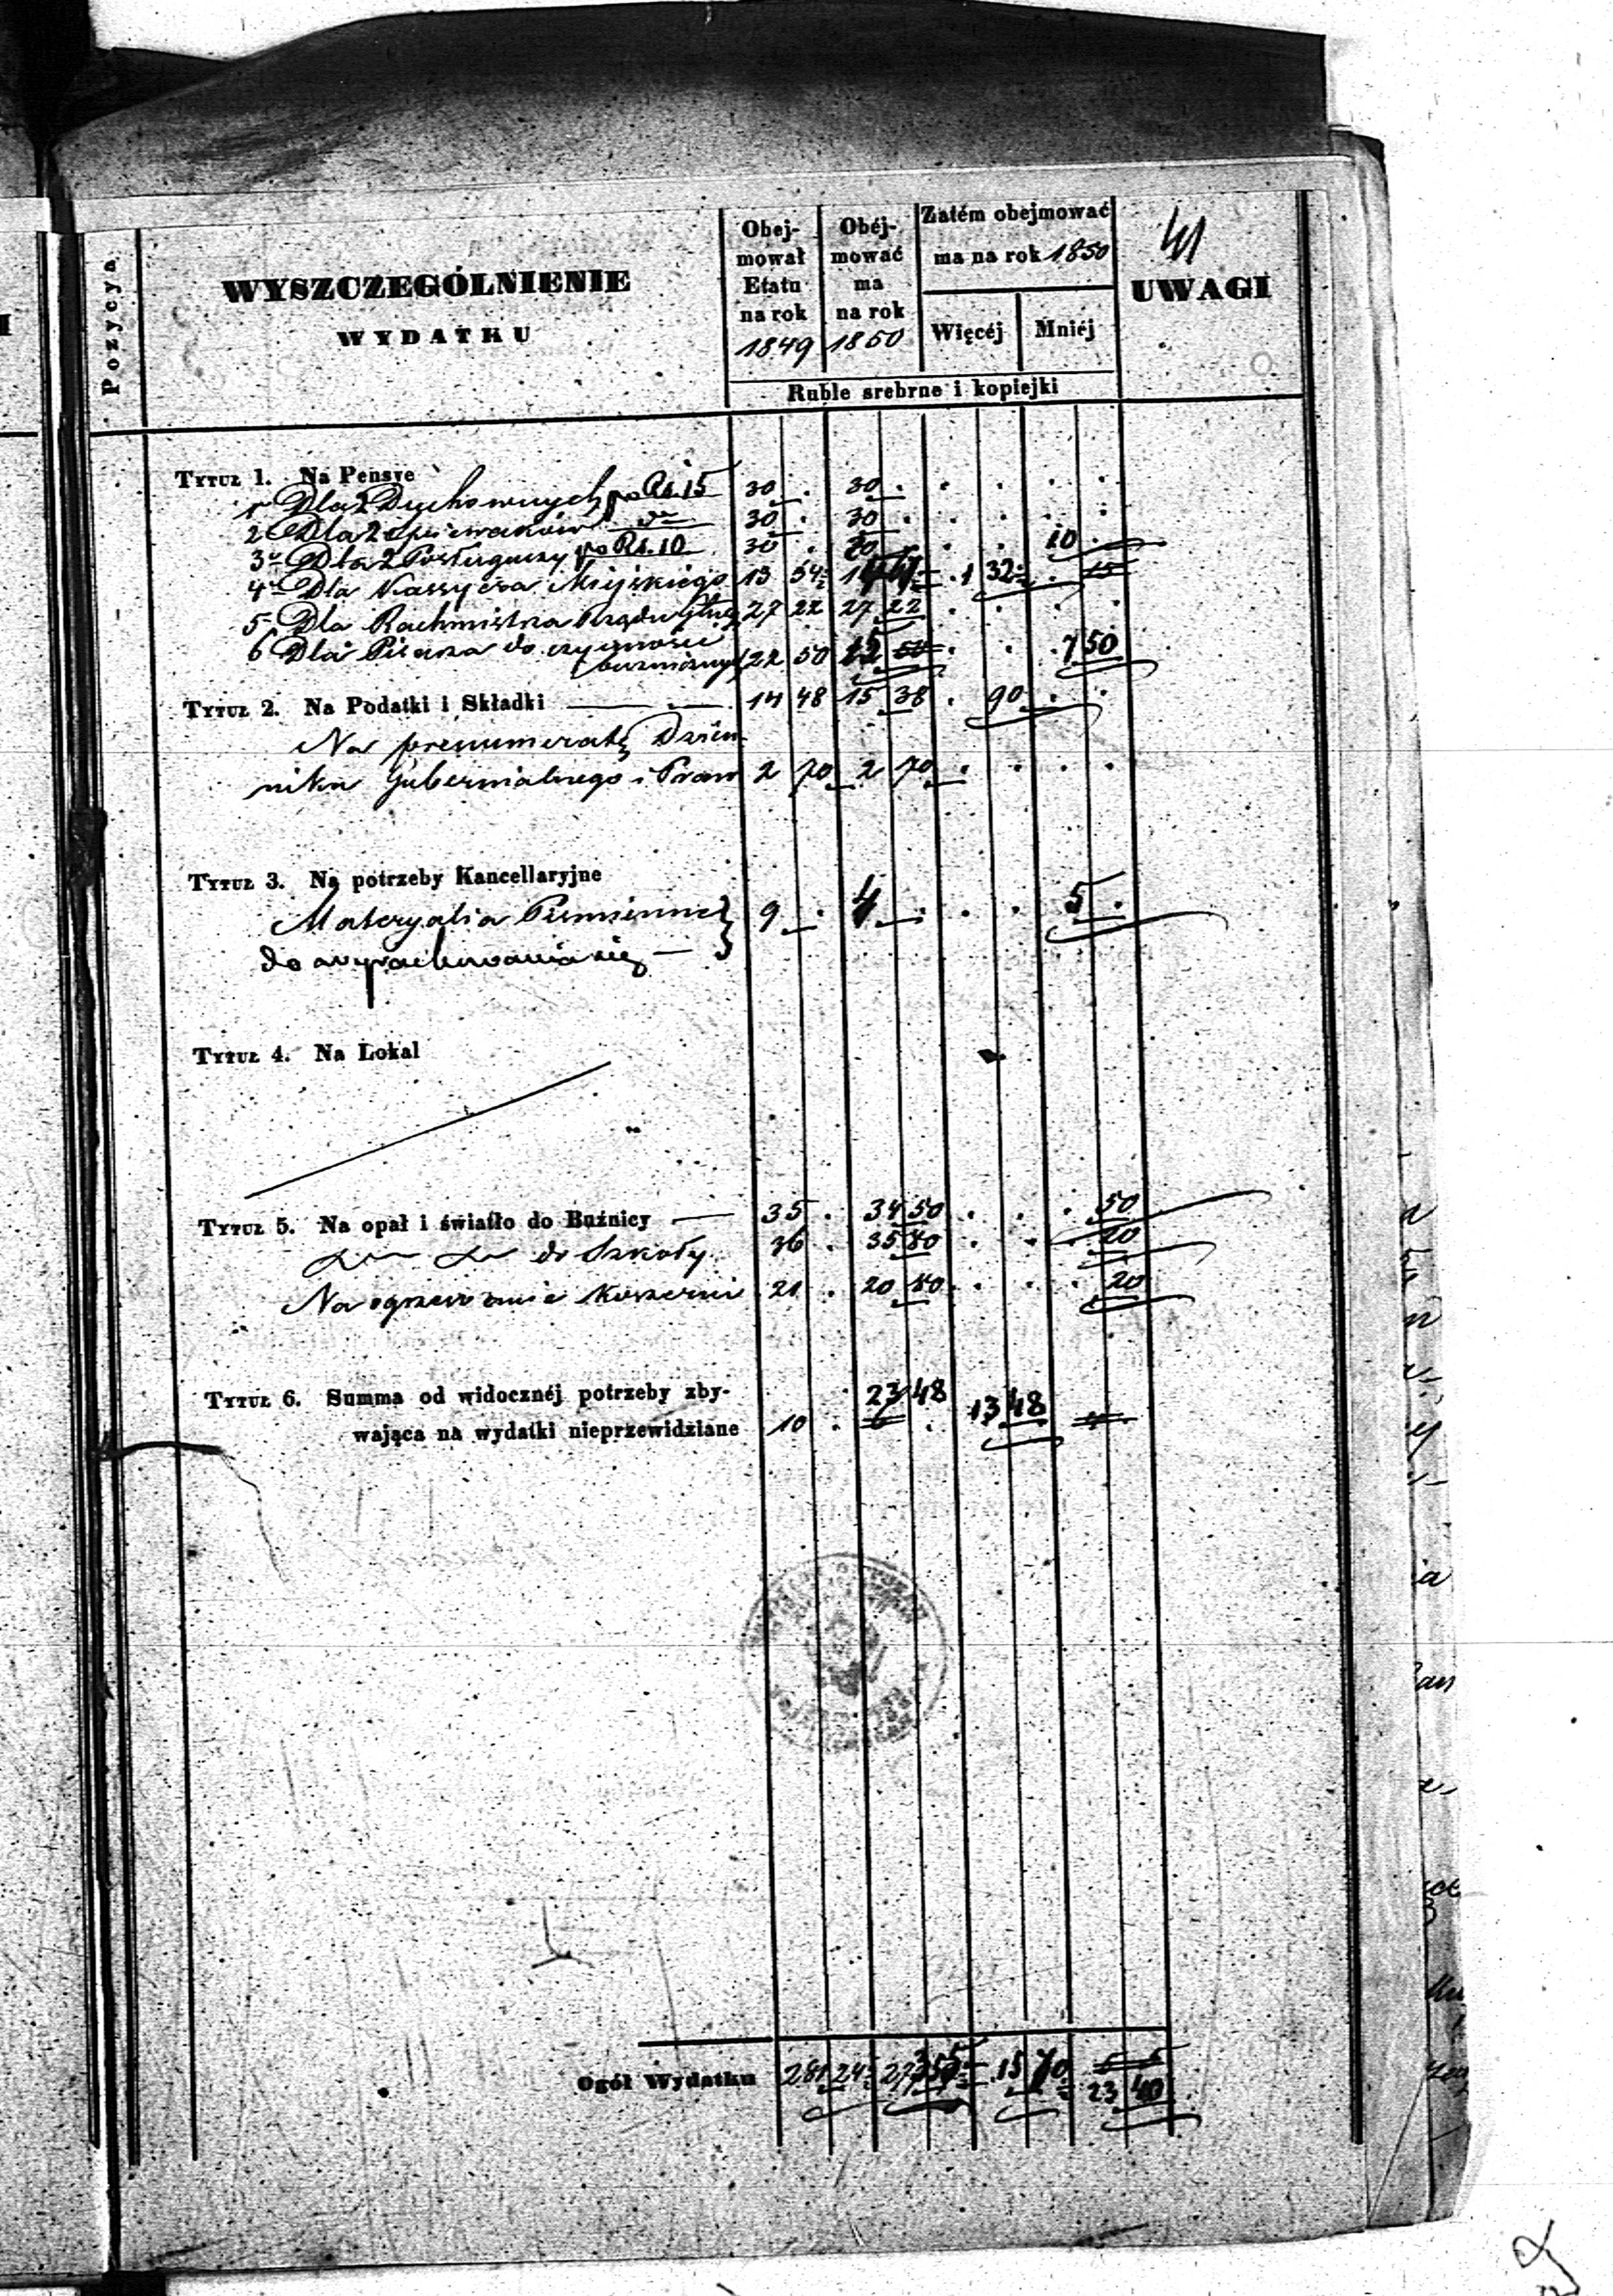 41
Pozycya
WYSZCZEGÓLNIENIE
WYDATKU
Obej-
mował
Etatu
na rok
1849
Obéj-
mować
ma
na rok
1850
Zatém obejmować
ma na rok 1850
Więcéj
Mniéj
UWAGI
Ruble srebrne i kopiejki
Tytuł 1. Na Pensye
1 Dla 2 Duchownych po Rs. 15 30 . 30 . . . . .
2 Dla 2 Śpiewaków do 30 . 30 . . . . .
3 Dla 2 Posługaczy po Rs. 10 30 . 20 . . . 10 .
4 Dla Kassyera Miejskiego 13 54 14 1 32 . 15
5 Dla Rachmistrza Rządu 27 22 27 22 . . . .
6 Dla Pisarza do czynności
22 50 15 50 . . 7 50
Tytuł 2. Na Podatki i Składki 14 48 15 38 . 90 . .
Na prenumeratę Dzien-
nika Gubernialnego i Praw 2 70 2 70 . . . .
Tytuł 3. Na potrzeby Kancellaryjne
Materyalia Piśmienne 9 . 4 . . . 5 .
do wyrachowania się
Tytuł 4. Na Lokal
Tytuł 5. Na opał i światło do Buźnicy 35 . 34 50 . . . 50
do Szkoły 36 . 35 80 . . . 20
Na ogrzewanie Koszerni 21 . 20 80 . . . 20
Tytuł 6. Summa od widocznéj potrzeby zby-
23 48
wająca na wydatki nieprzewidziane 10 . 13 48
Ogół Wydatku 281 24 15 70
23 40